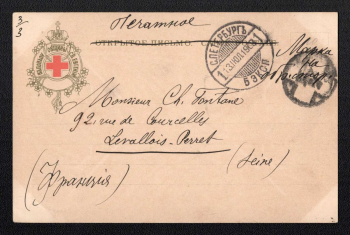 3/3
Печатное
ОТКРЫТОЕ ПИСЬМО.
С.ПЕТЕРБУРГЪ
Марка
на
Monsieur Ch. Fontane
92, rue de Courcelles
Levallois-Perret
(Seine)
(Франція)